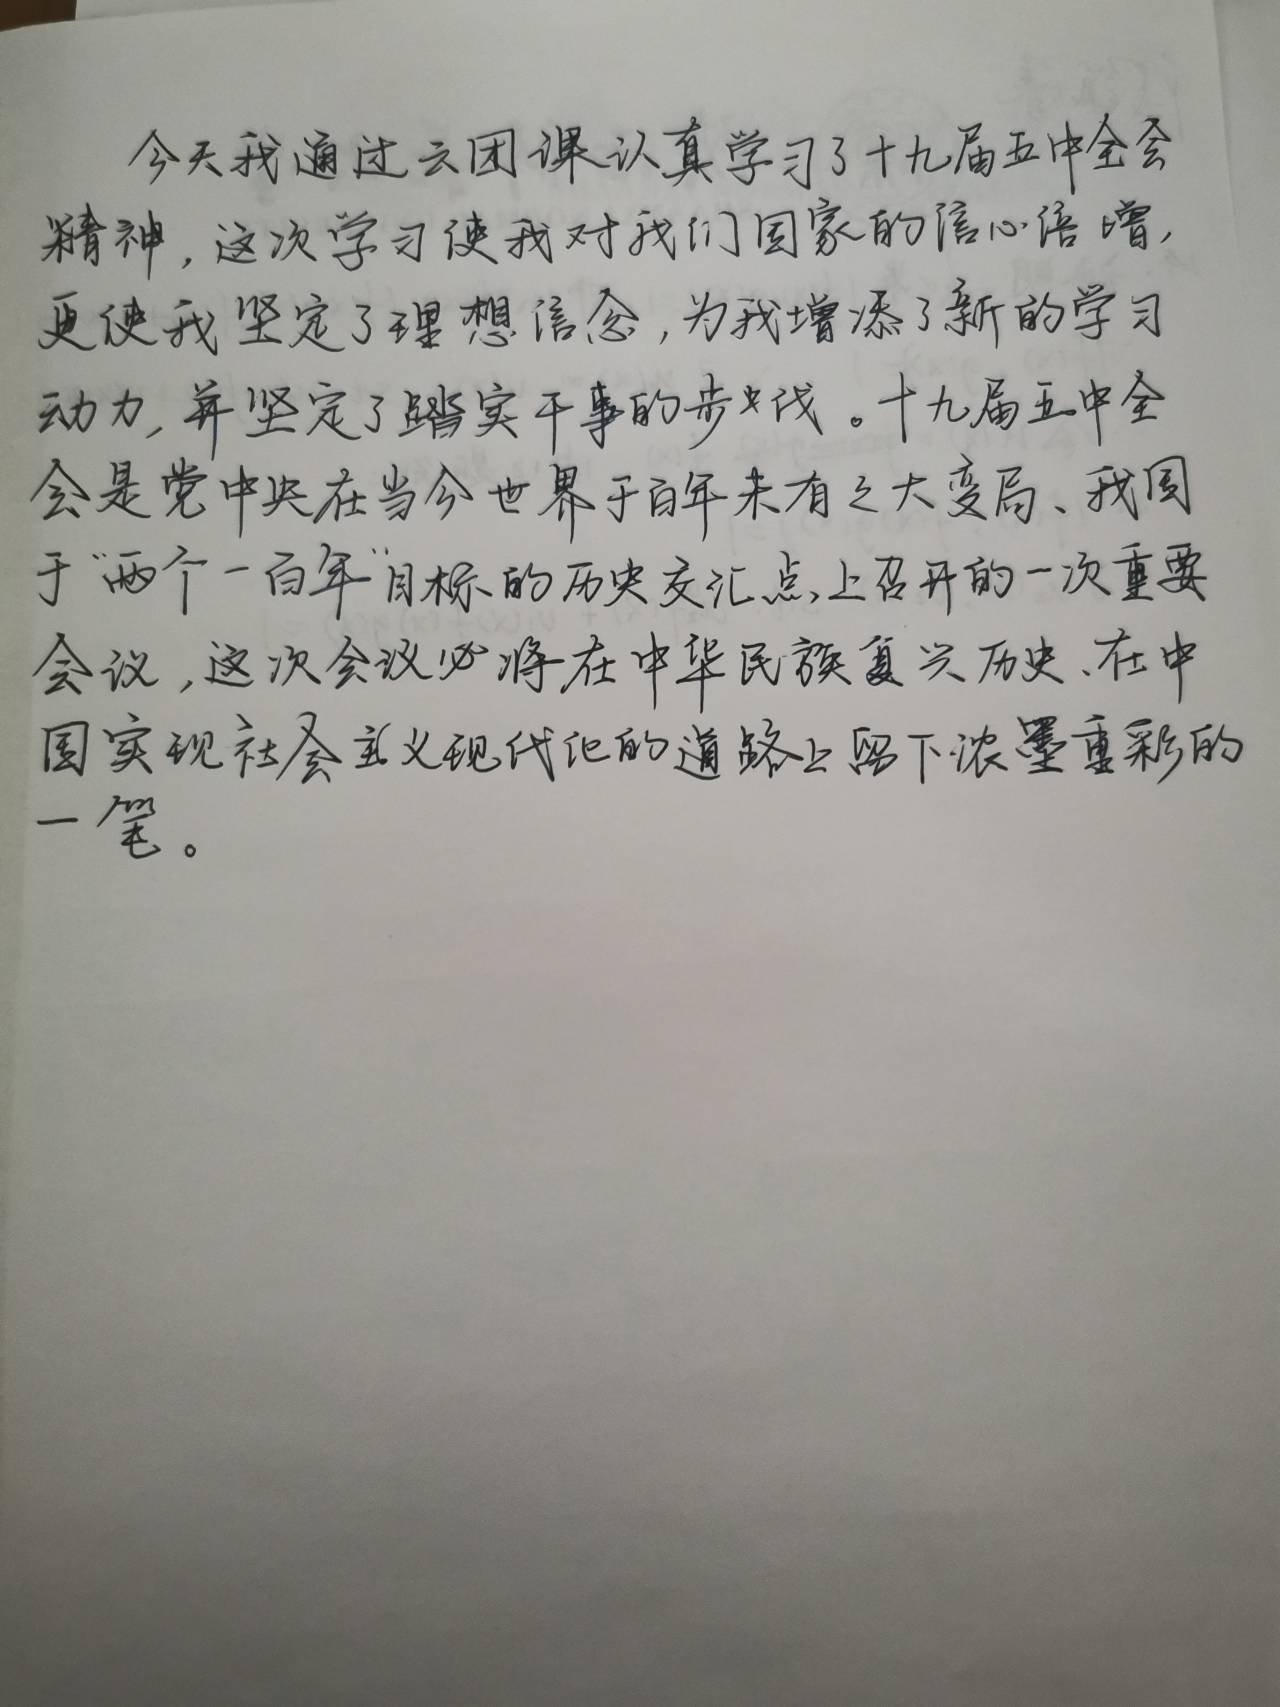 今天我通过云团课认真学习了十九届五中全会
精神,这次学习使我对我们国家的信心倍增,
更使我坚定了理想信念,为我增添了新的学习
动力,并坚定了踏实干事的步伐。十九届五中全
会是党中央在当今世界于百年未有之大变局、我国
于“两个一百年”目标的历史交汇点上召开的一次重要
会议,这次会议必将在中华民族复兴历史、在中
国实现社会主义现代化的道路上留下浓墨重彩的
一笔。